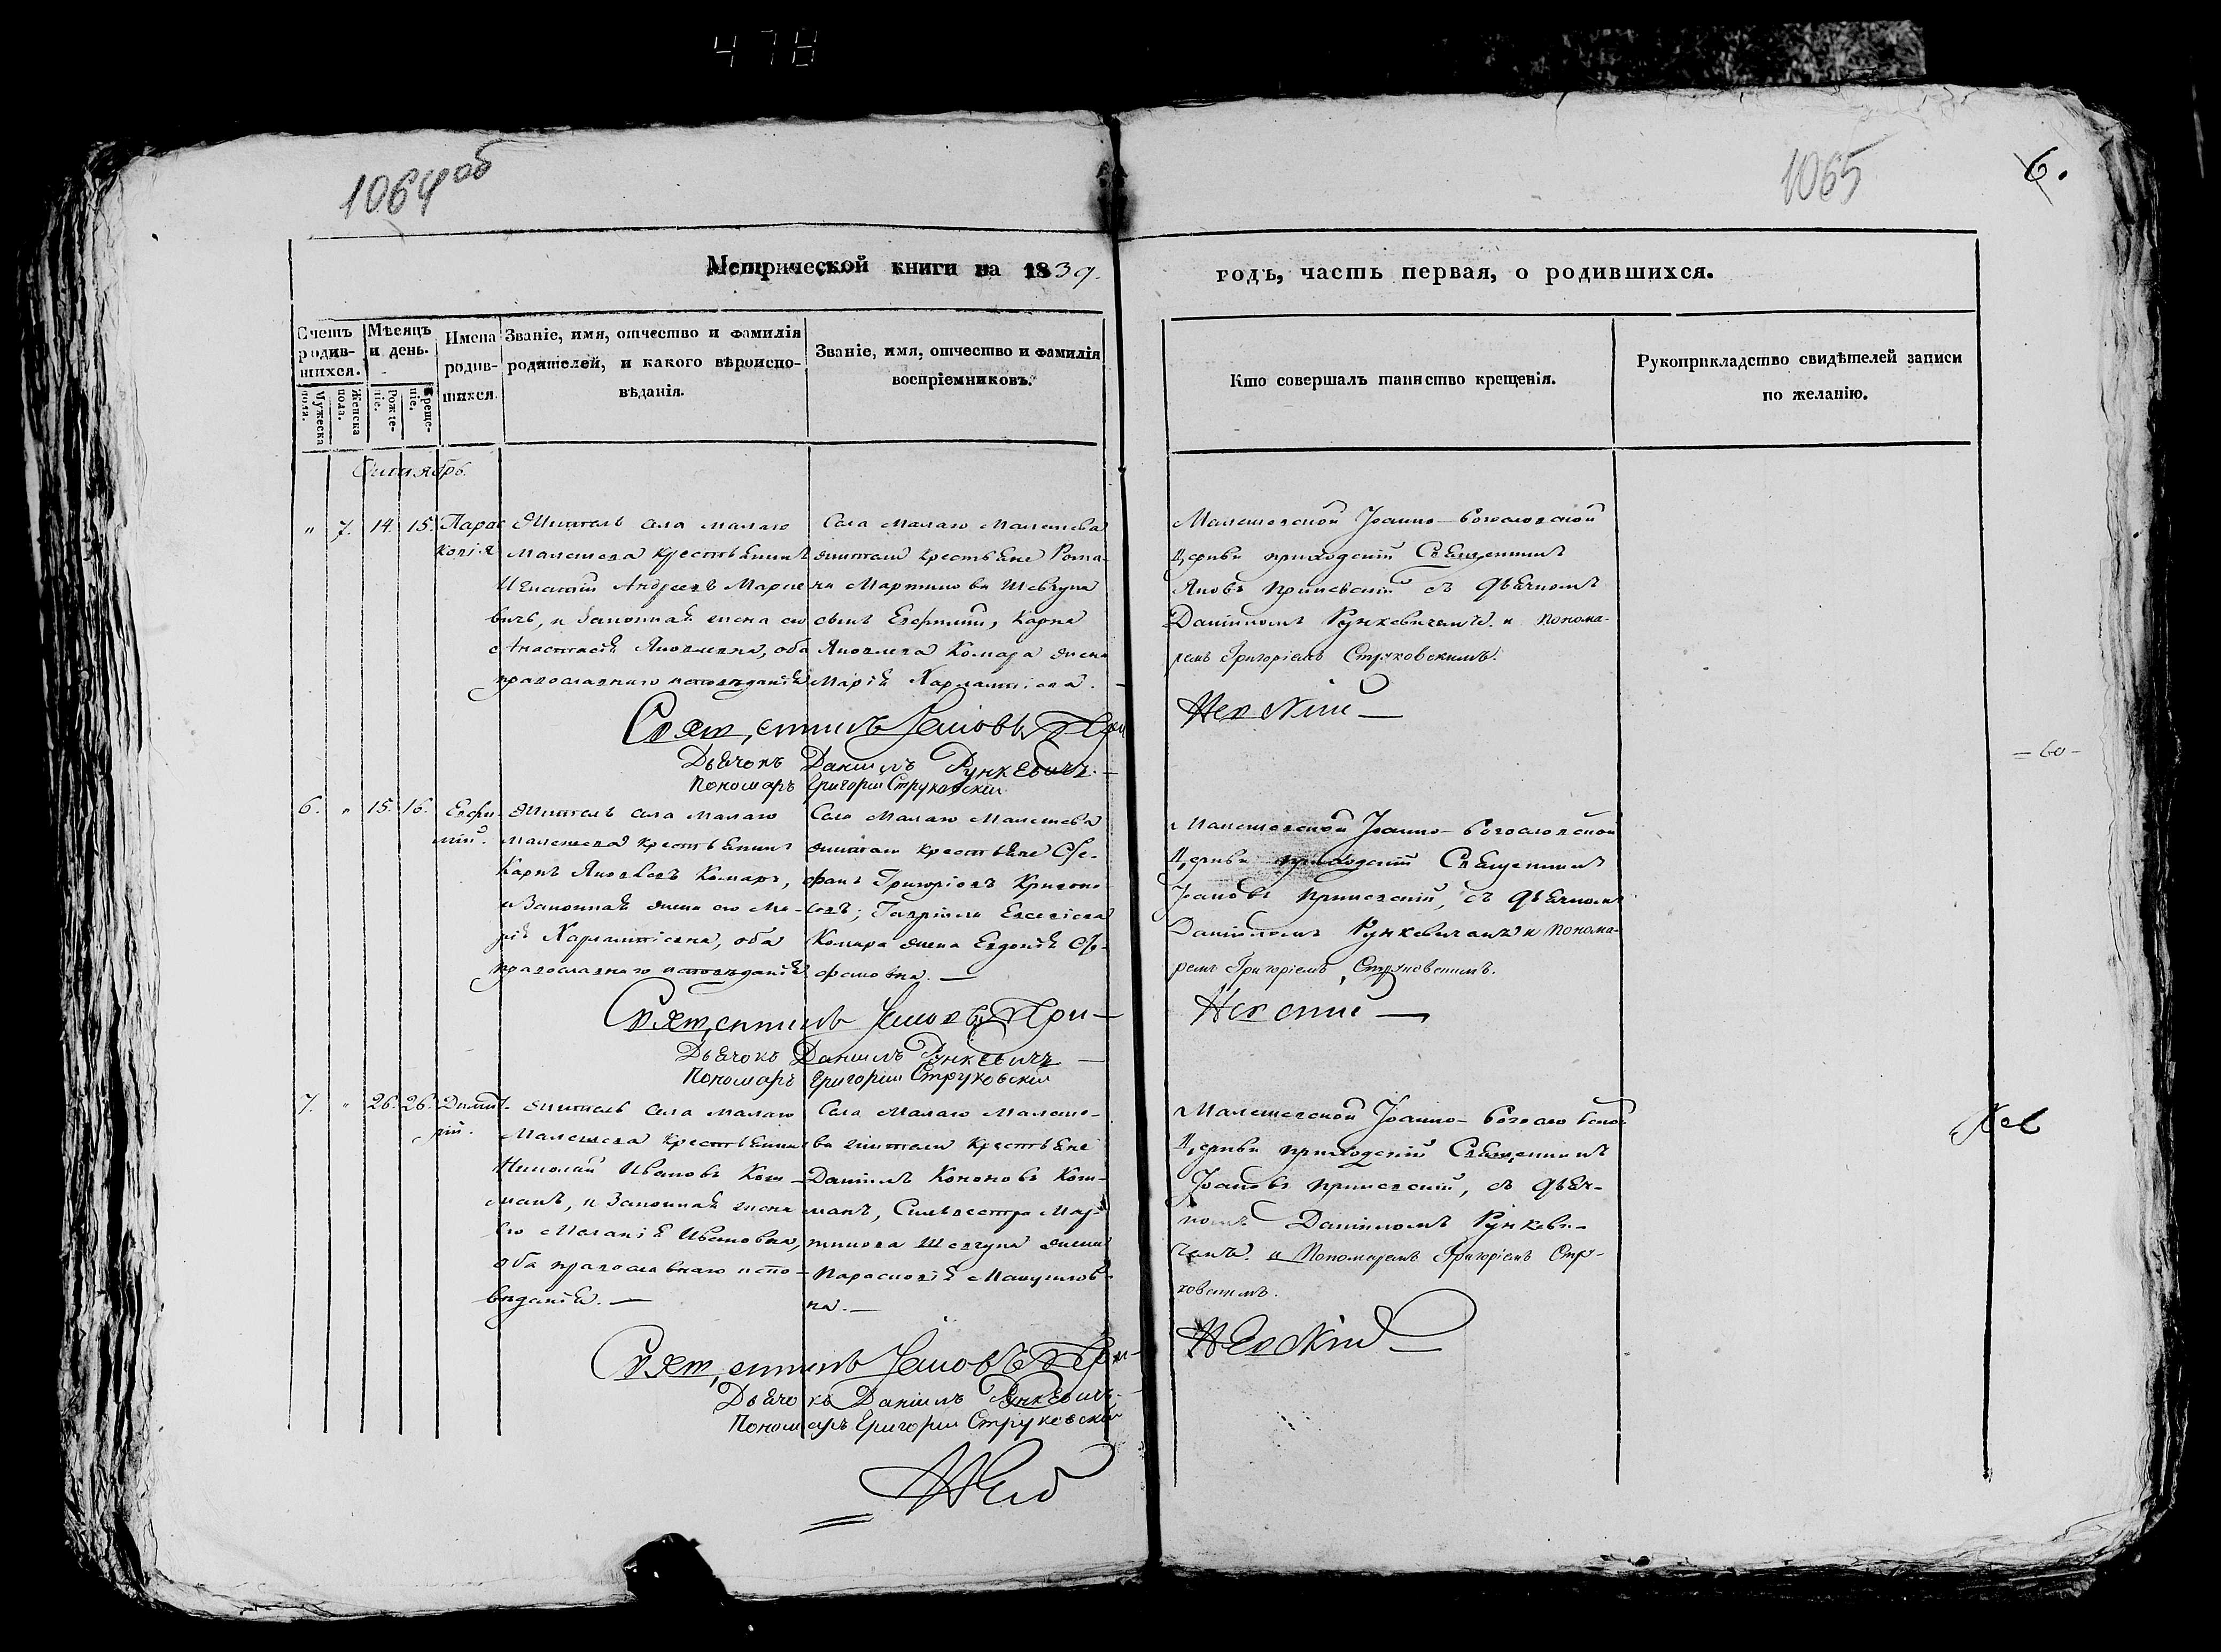 478
1064 об
1065
6.
Метрической книги на 1839.
годъ, часть первая, о родившихся.
Счетъ родив-шихся.
Мужеска пола.
Женска пола.
Мѣсяцъ и день.
Рожде-ніе.
Креще-ніе.
Имена родив-шихся.
Званіе, имя, отчество и фамилія
родителей, и какого вѣроиспо-
вѣданія.
Званіе, имя, отчество и фамилія
воспріемниковъ.
Кто совершалъ таинство крещенія.
Рукоприкладство свидѣтелей записи
по желанію.
Октябрь.
" 7. 14. 15. Парас
ковія
Житель села малаго
Малешева крестьянинъ
Игнатій Андреевъ Марце
вичъ, и Законная жена его
Анастасія Яковлевна, оба
православнаго исповѣданія
Села Малаго Малешева
жители крестьяне Рома-
на Мартинова Шевчука
сынъ Евфимій, Карпа
Яковлева Комара жена
Марія Харлампіева.
Малешевской Іоанно-Богословской
Церкви приходскій Священникъ
Яковъ с дьячкомъ
Даніиломъ Рункевичемъ и понома-
ремъ Григоріемъ Струковскимъ.
Дьячокъ Даніилъ Рункевичъ.
Пономарь Григорій Струковскій
= 60 -
6. " 15. 16. Евфи
мій.
Житель села малаго
Малешева крестьянинъ
Карпъ Яковлевъ Комаръ,
и Законная жена его Ма-
рія Харлампіевна, оба
православнаго исповѣданія
Села Малаго Малешева
жители крестьяне Сте-
фанъ Григоріевъ
Гавріила
Комара жена Евдокія Сте-
фановна. —
Малешевской Іоанно-Богословской
Церкви приходскій Священникъ
Іаковъ съ дьячкомъ
Даніиломъ Рункевичемъ и понома-
ремъ Григоріемъ Струковскимъ.
Дьячокъ Даніилъ Рункевичъ
Пономарь Григорій Струковскій
7. " 26. 26. Димит-
рій.
Житель села малаго
Малешева крестьянинъ
Николай Ивановъ Кот-
манъ, и Законная жена
его Меланія Ивановна,
оба православнаго испо-
вѣданія. —
Села Малаго Малеше-
ва жители крестьяне
Даніилъ Кононовъ Кот-
манъ, Сильвестра Мар-
тинова Шевчука жена
Парасковія Мануилов-
на. —
Малешевской Іоанно-Богословской
Церкви приходскій Священникъ
Іаковъ съ дьяч-
комъ Даніиломъ Рункеви-
чемъ и Пономаремъ Григоріемъ Стру-
ковскимъ.
Дьячокъ Даніилъ Рункевичъ
Пономарь Григорій Струковскій